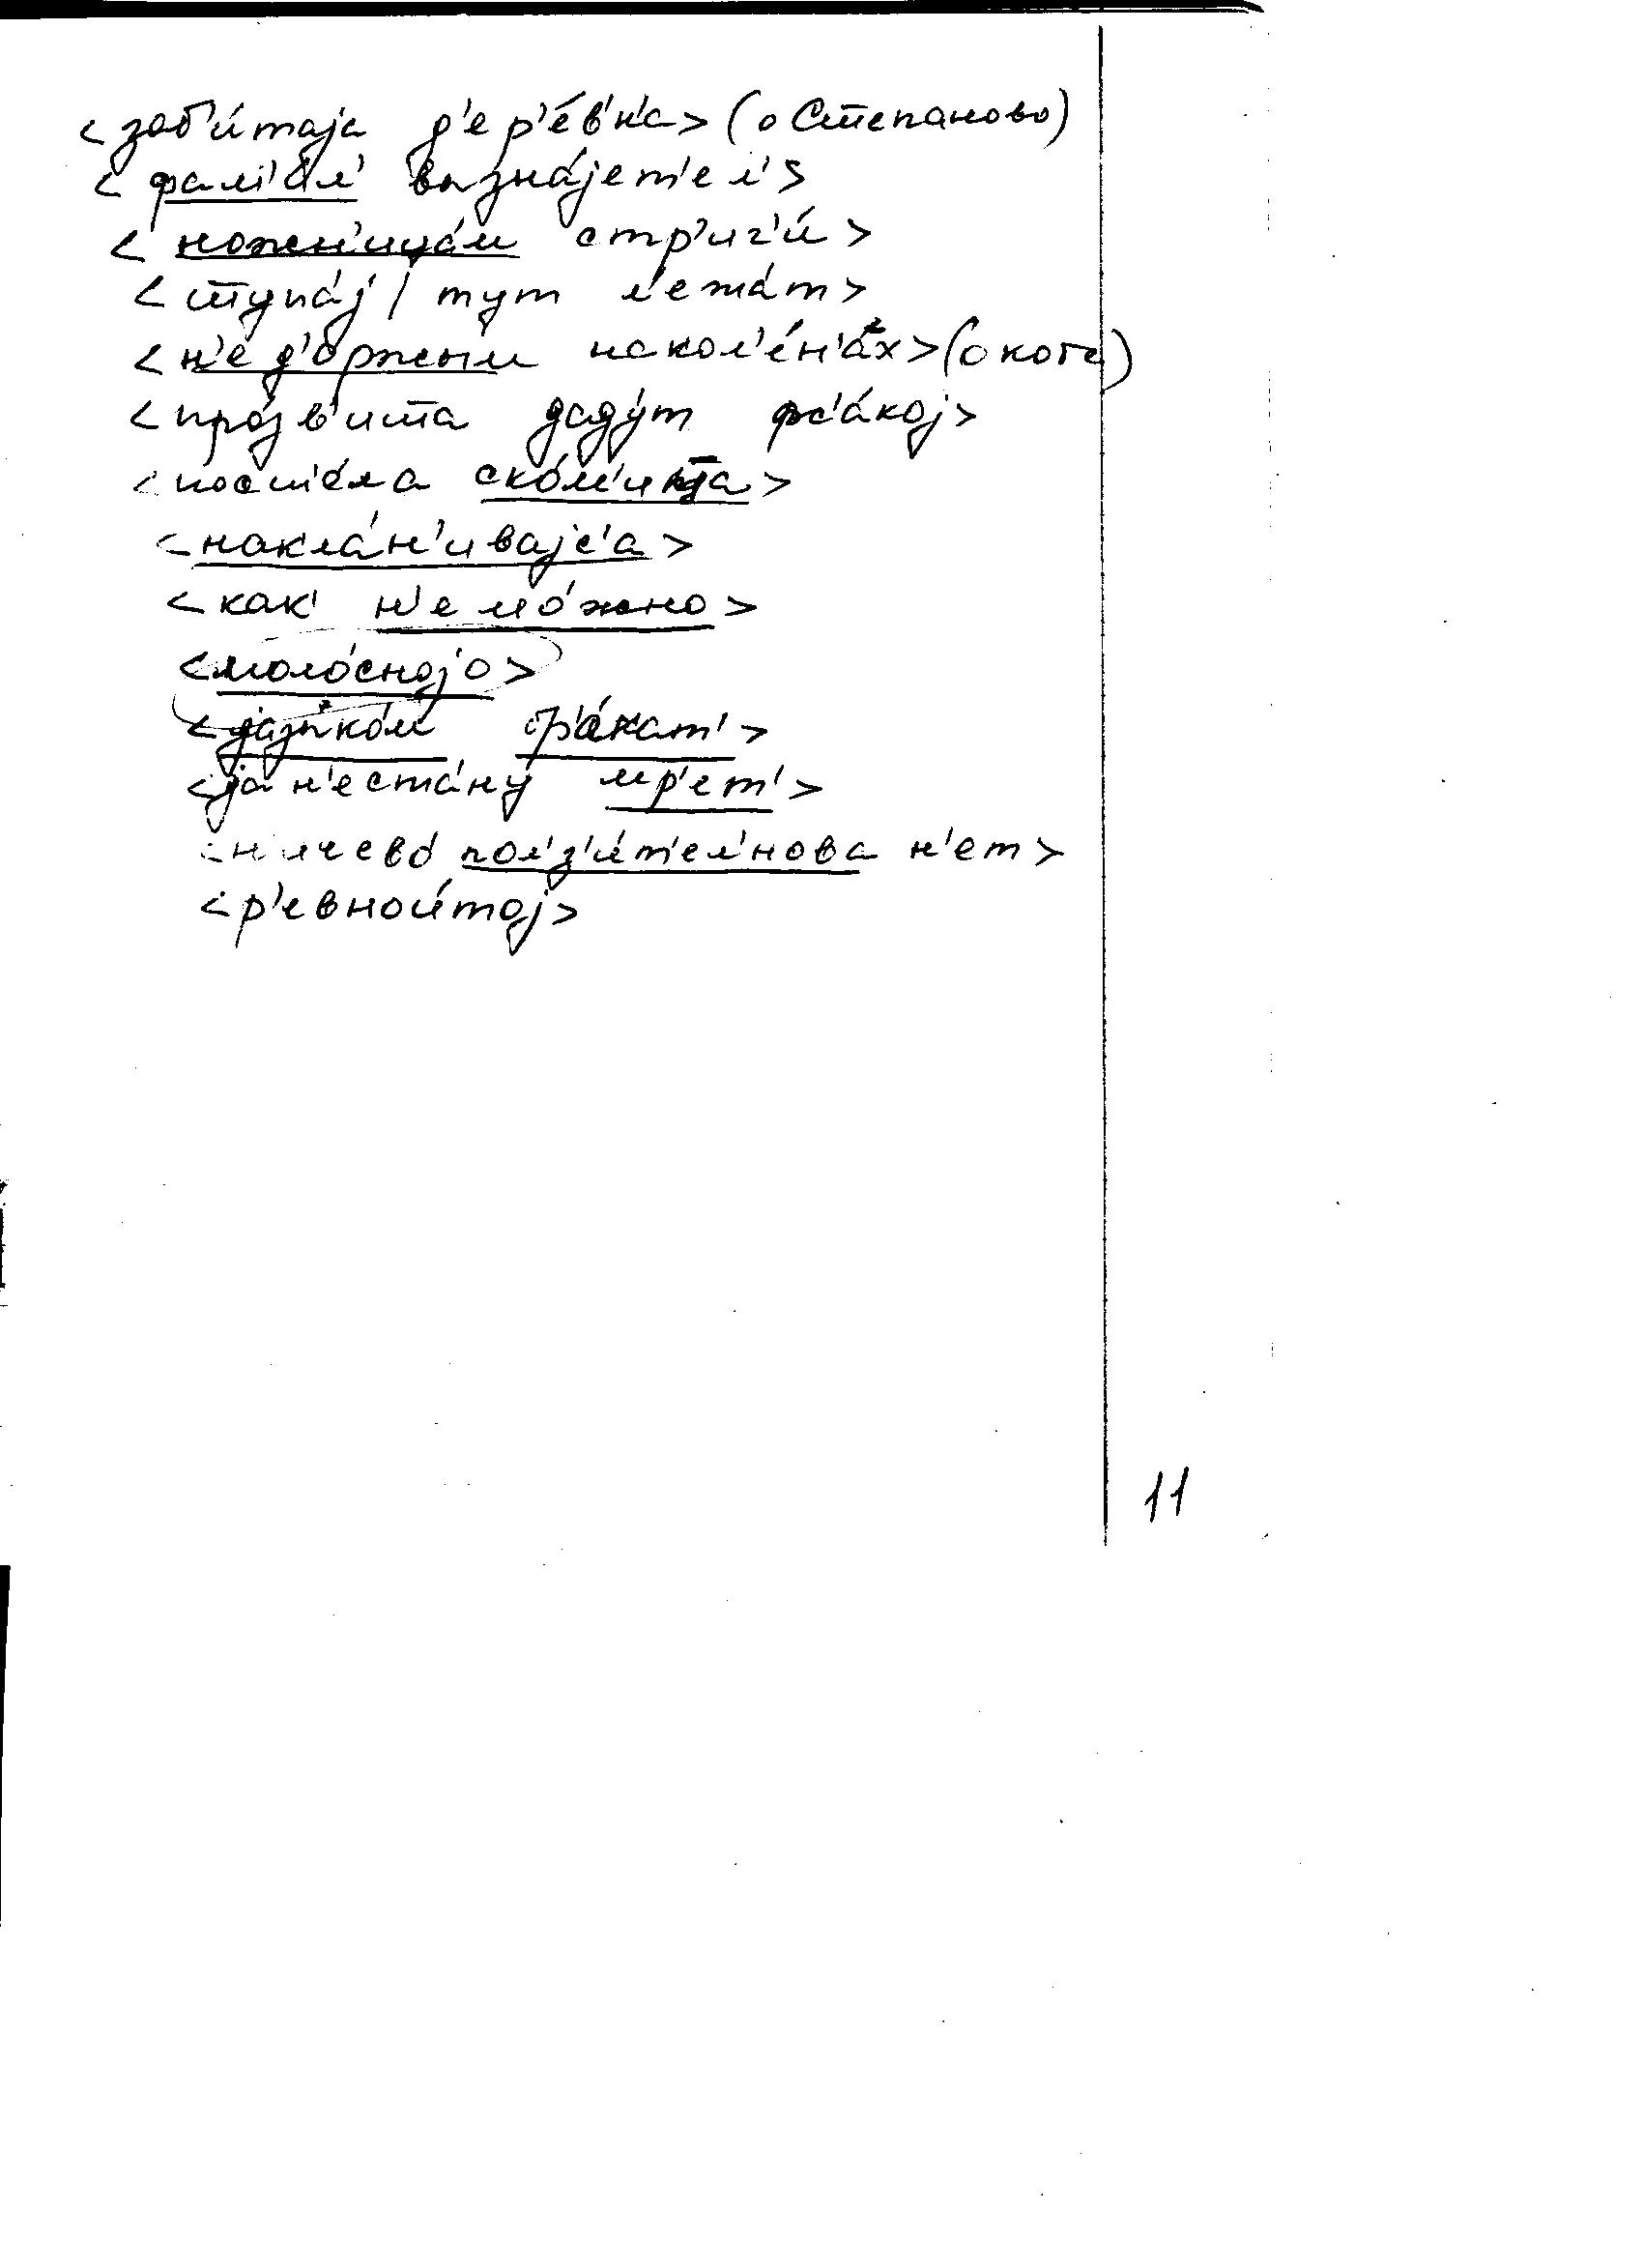 <заб'и́таја д'ер'е́в'н'а> (о Степаново)
<фам'и́л' вызна́јет'ел'>
<ножн'ица́м стр'иг'и́>
<ступа́ј / тут л'ежа́т>
<н'е д'о́ржым на кол'е́н'ах> (о коте)
<про́зв'ишша даду́т фс'а́кој>
<посп'е́ла ско́м'
<накла́н'ивајс'а>
<как н'е мо́жно>
<моло́сново>
<јазыко́м бр'а́кат'>
<ја н'е ста́ну мр'ет'>
<н'ичево́ пол'з'и́т'ел'нова н'ет>
<р'евнои́тој>
11